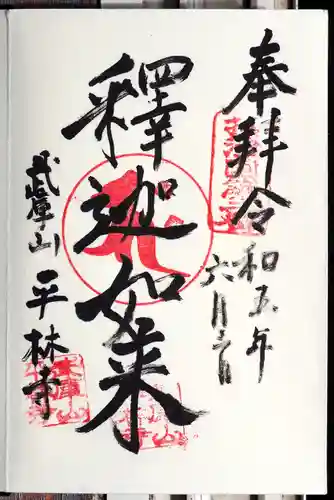 奉拜 令和五年
六月三日
釋迦如来
武庫山 平林寺